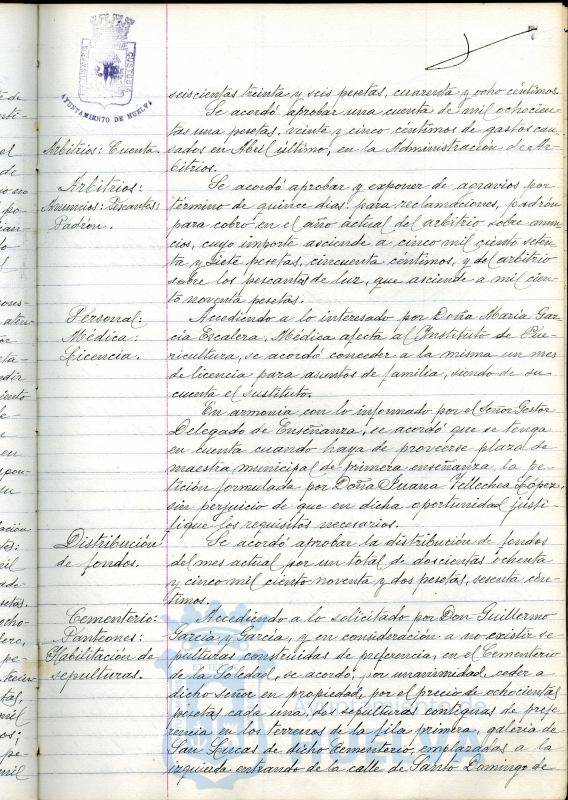 7
AYUNTAMIENTO DE HUELVA
seiscientas treinta y seis pesetas, cuarenta y ocho céntimos.
Arbitrios: Cuenta.
Se acordó aprobar una cuenta de mil ochocien-
tas una pesetas, veinte y cinco céntimos de gastos cau-
sados en Abril último, en la Administración de Ar-
bitrios.
Arbitrios:
Anuncios: Pescantes:
Padrón.
Se acordó aprobar y exponer de agravios por
término de quince días para reclamaciones, padrón
para cobro en el año actual del arbitrio sobre anun-
cios, cuyo importe asciende a cinco mil ciento seten-
ta y siete pesetas, cincuenta céntimos, y del arbitrio
sobre los pescantes de luz, que asciende a mil cien-
to noventa pesetas.
Personal:
Médica:
Licencia.
Accediendo a lo interesado por Doña María Gar-
cía Escalera, Médica afecta al Instituto de Pue-
ricultura, se acordó conceder a la misma un mes
de licencia para asuntos de familia, siendo de su
cuenta el sustituto.
En armonía con lo informado por el Señor Gestor
Delegado de Enseñanza, se acordó que se tenga
en cuenta cuando haya de proveerse plaza de
maestra municipal de primera enseñanza, la pe-
tición formulada por Doña Juana Tellechea López,
sin perjuicio de que en dicha oportunidad justi-
fique los requisitos necesarios.
Distribución
de fondos.
Se acordó aprobar la distribución de fondos
del mes actual por un total de doscientas ochenta
y cinco mil ciento noventa y dos pesetas, sesenta cén-
timos.
Cementerio:
Panteones:
Habilitación de
sepulturas.
Accediendo a lo solicitado por Don Guillermo
García y García, y en consideración a no existir se-
pulturas construidas de preferencia, en el Cementerio
de la Soledad, se acordó, por unanimidad, ceder a
dicho señor en propiedad, por el precio de ochocientas
pesetas cada una, dos sepulturas contiguas de prefe-
rencia en los terrenos de la fila primera, galería de
San Lucas de dicho Cementerio, emplazadas a la
izquierda entrando de la calle de Santo Domingo de